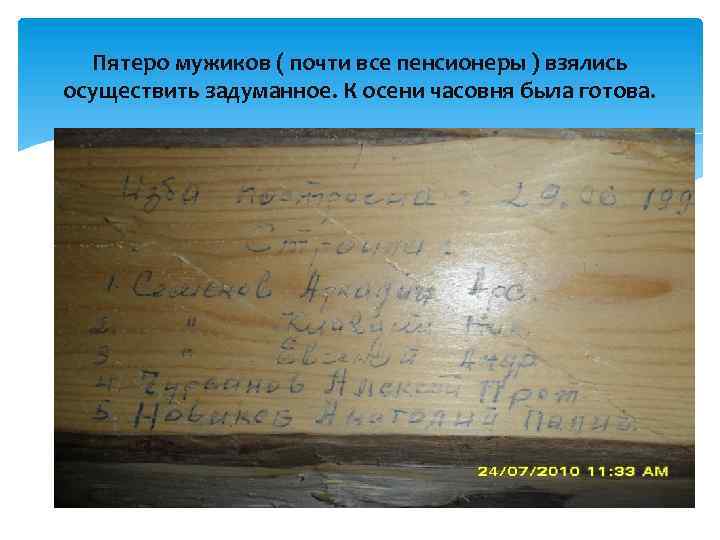 Пятеро мужиков ( почти все пенсионеры ) взялись
осуществить задуманное. К осени часовня была готова.
Изба построена : 29.06 199
Строили :
1. Семенов Аркадий Арс.
2. " Клавдий Ник.
3 " Евгений
4. Чурбанов Алексей Прот
5. Новиков Анатолий
24/07/2010 11:33 AM